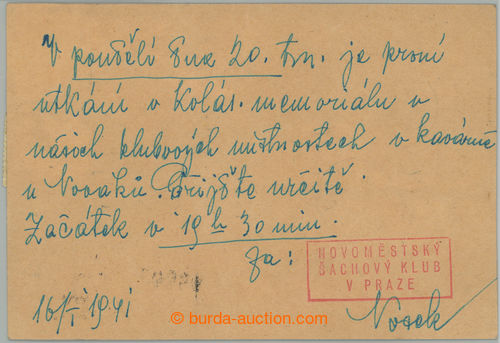 V pondělí dne 20. t.m. je první
utkání v Kolás. memoriálu v
našich klubových místnostech v kavárně
u Nováků. Přijďte určitě.
Začátek v 19 h 30 min.
Za:
NOVOMĚSTSKÝ
ŠACHOVÝ KLUB
V PRAZE
16/I 1941
Nosek
© burda-auction.com